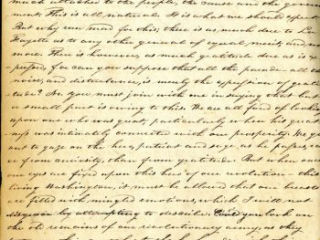 much attached to the people, the cause and the govern-
ment. This is all natural. It is what we should expect.
But why one need for this; there is as much due to La
Fayette as to any other general of equal merit, and no
more. There is however, as much gratitude due as is ex-
pressed; for can you suppose that all the parade, all the
noise, and disturbance, is merely the effusion of grati-
tude? No. You must join with me in saying that but
a small part is owing to this. We are all fond of looking
upon one who was great, particularly when his great-
was intimately connected with our prosperity. We go
out to gaze on the hero, patriot and sage, as he passes,
from curiosity, than from gratitude. But when once
our eyes are fixed upon this hero of our revolution - this
living Washington, it must be allowed that our breasts
are filled with mingled emotions, which I will not
by attempting to describe. Could you look on
the old remains of our revolutionary army as they